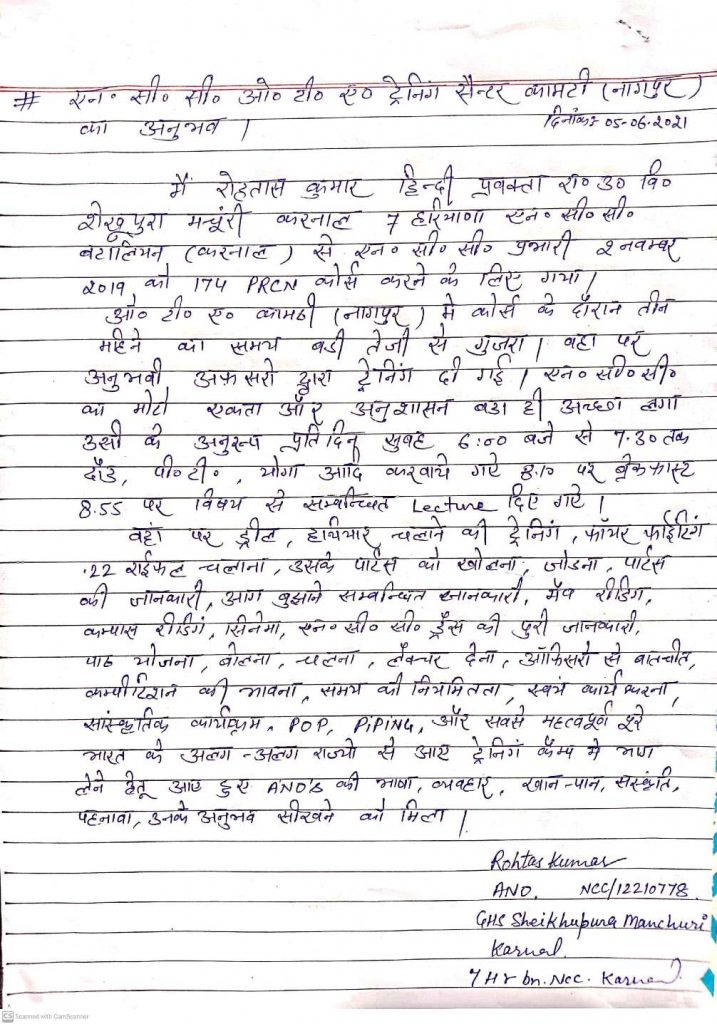 # एन॰ सी॰ सी॰ ओ॰ टी॰ ए॰ ट्रेनिंग सैन्टर कामटी (नागपुर)
का अनुभव । दिनांकः 05-06-2021
मैं रोहतास कुमार हिन्दी प्रवक्ता रा॰ उ॰ वि॰
शेखूपुरा मन्चूरी करनाल 7 हरियाणा एन॰ सी॰ सी॰
बटालियन (करनाल) से एन॰ सी॰ सी॰ प्रभारी 2 नवम्बर
2019 को 174 PRCN कोर्स करने के लिए गया।
ओ॰ टी॰ ए॰ कामठी (नागपुर) मे कोर्स के दौरान तीन
महिने का समय बडी तेजी से गुजरा। वहा पर
अनुभवी अफसरो द्वारा ट्रेनिंग दी गई। एन॰ सी॰ सी॰
का मोटो एकता और अनुशासन बडा ही अच्छा लगा
उसी के अनुरूप प्रतिदिन सुबह 6:00 बजे से 7.30 तक
दौड, पी॰ टी॰, योगा आदि करवाये गए 8.10 पर ब्रेकफास्ट
8.55 पर विषय से सम्बन्धित Lecture दिए गए।
वहां पर ड्रील, हथियार चलाने की ट्रेनिंग, फॉयर फाईटिंग
.22 राईफल चलाना, उसके पार्टस को खोलना, जोडना, पार्टस
की जानकारी, आग बुझाने सम्बन्धित जानकारी, मैप रीडिग,
कम्पास रीडिगं, सिनेमा, एन॰ सी॰ सी॰ ड्रैस की पुरी जानकारी,
पाठ योजना, बोलना, चलना, लैक्चर देना, ऑफिसरो से बातचीत,
कम्पीटिशन की भावना, समय की नियमितता, स्वयं कार्य करना,
सांस्कृतिक कार्यक्रम, POP, PiPiNG, और सबसे महत्वपूर्ण पूरे
भारत के अलग-अलग राज्यो से आए ट्रेनिगं कैम्प मे भाग
लेने हेतू आए हुए ANO'S की भाषा, व्यवहार, खान-पान, संस्कृति,
पहनावा, उनके अनुभव सीखने को मिला।
Rohtas Kumar
ANO. NCC/12210778.
GHS Sheikhupura Manchuri
Karnal.
7 HR bn. Ncc. Karnal
CS Scanned with CamScanner